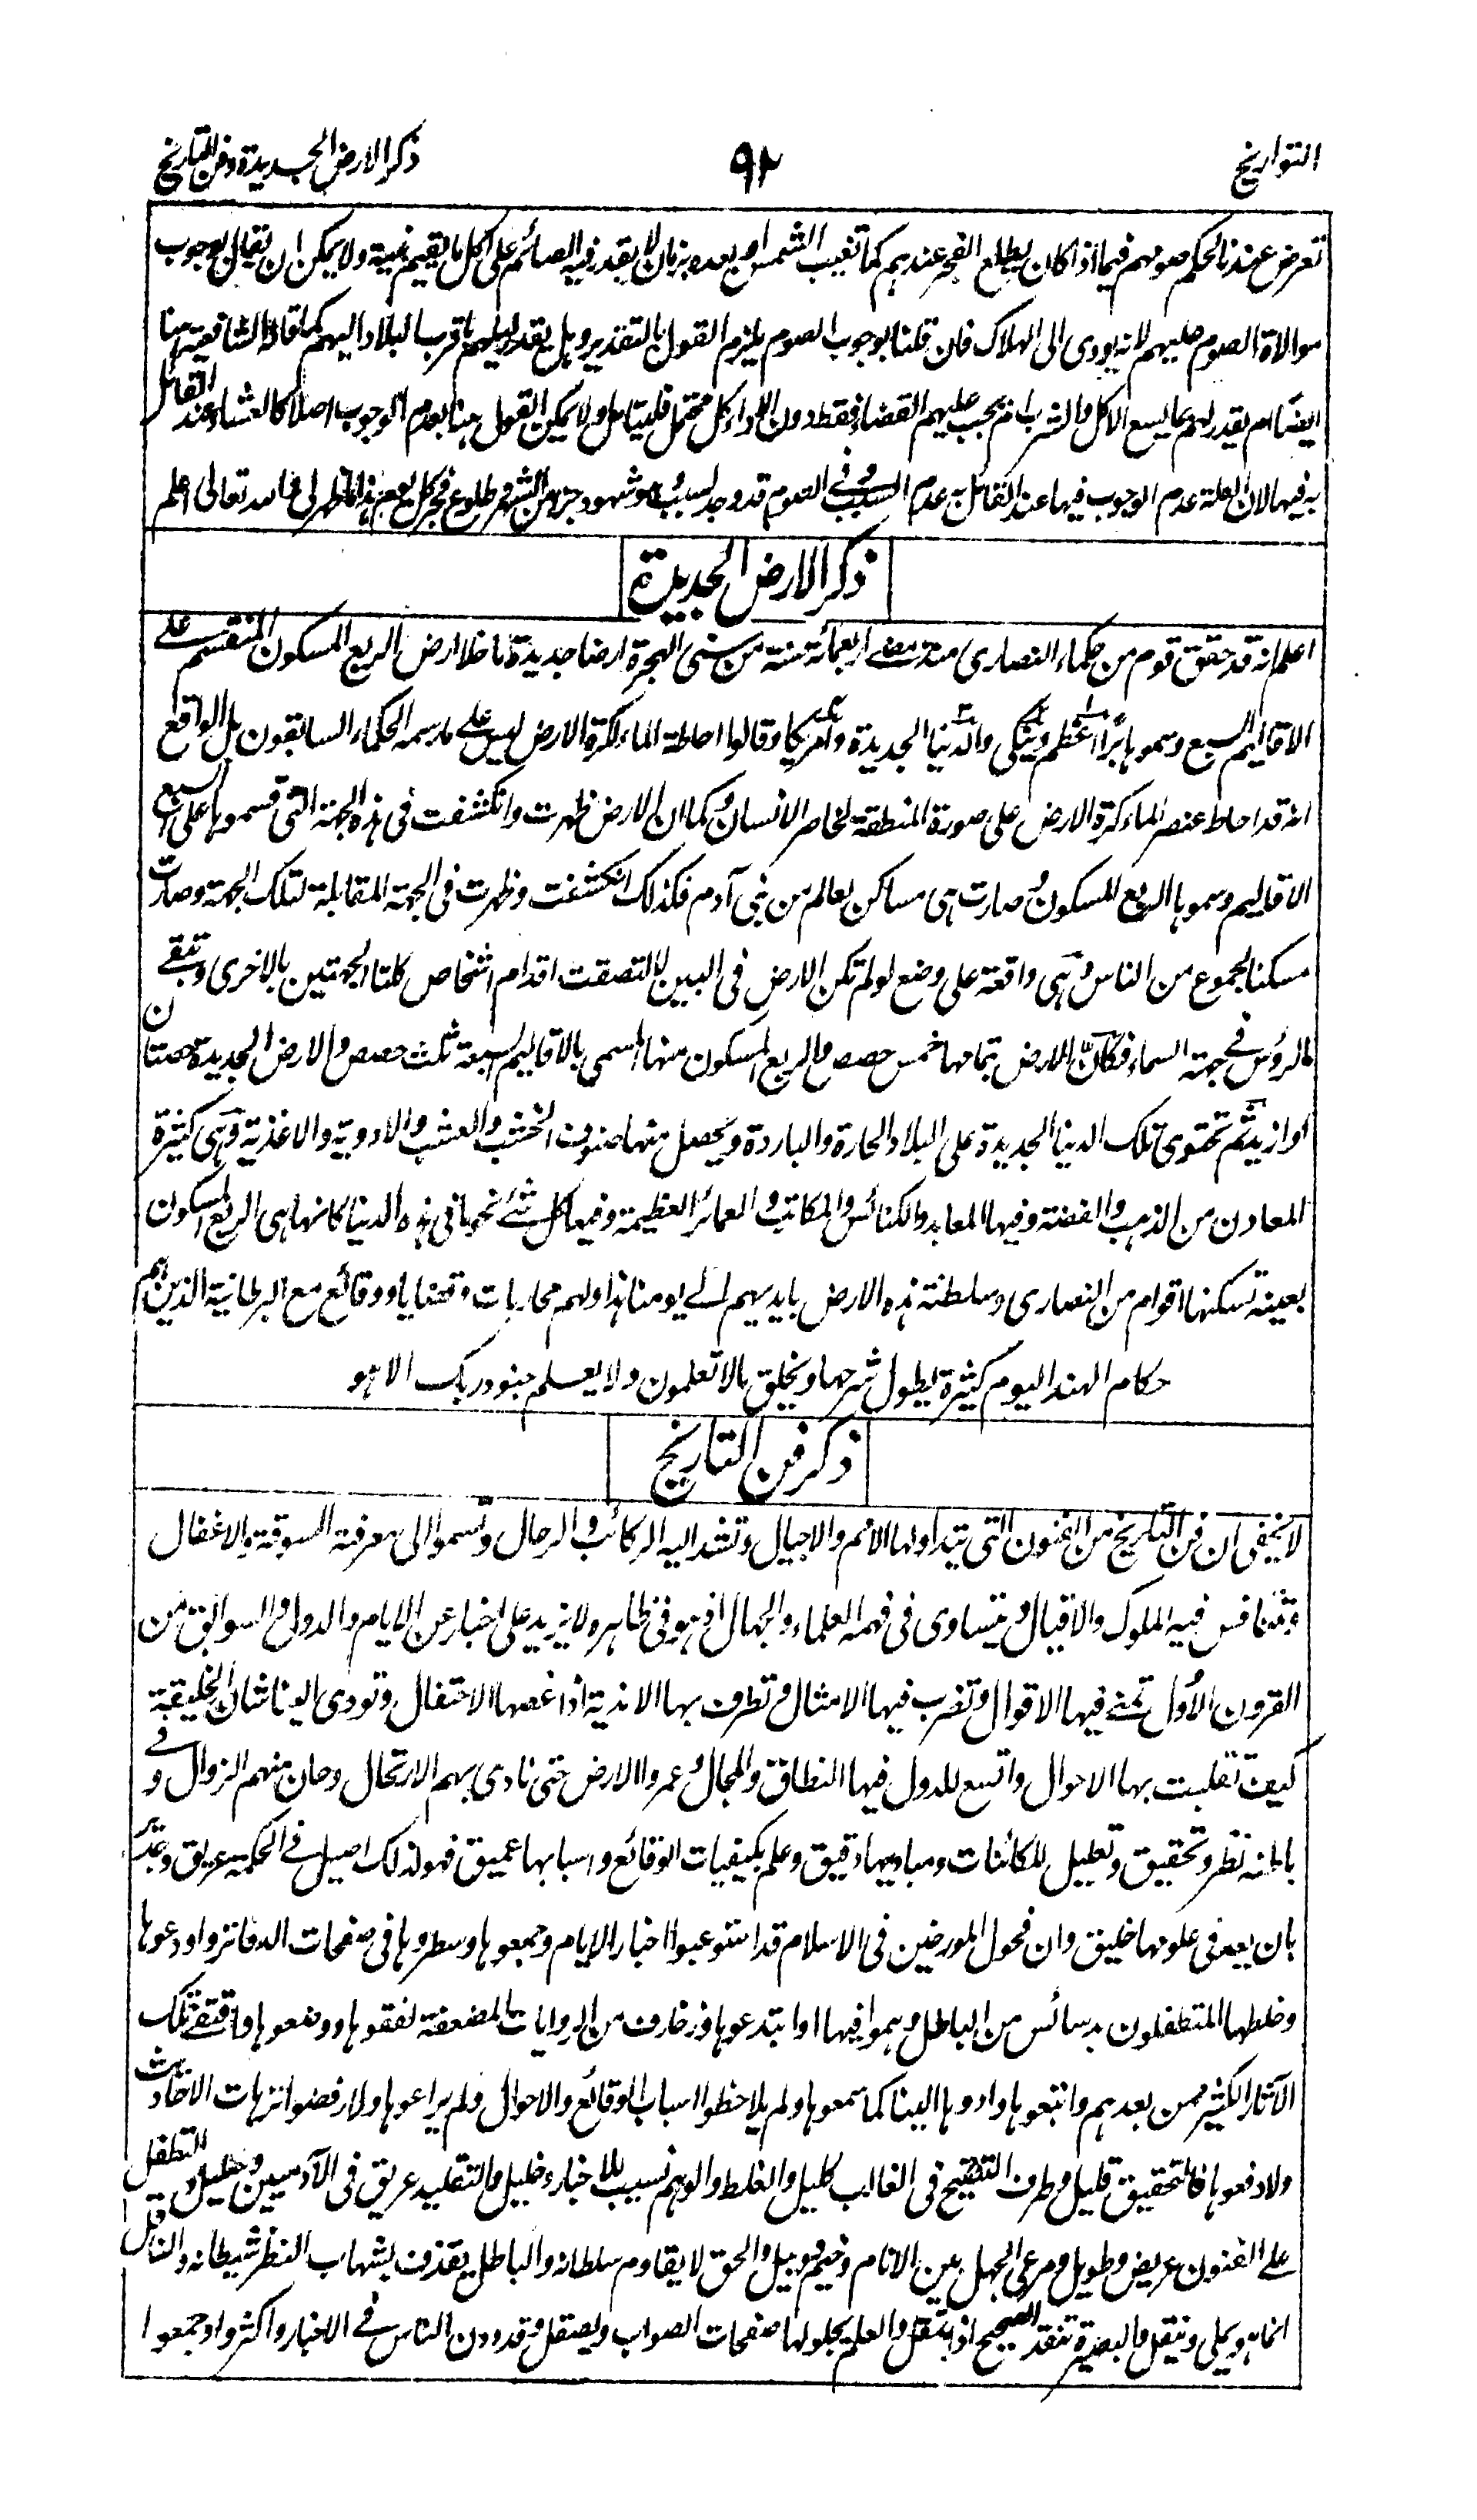 التواريخ
٩٢
ذكر الارض الجديدة وفن التاريخ
تعرض عندنا لحكم صومهم فيما اذا كان يطلع الفجر عندهم كما تغيب الشمس او بعده بزمان لا يقدر فيه الصائم على اكل ما يقيم بنيته ولا يمكن ان يقال بوجوب
موالاة الصوم عليهم لانه يودى الى الهلاك فان قلنا بوجوب الصوم يلزم القول بالتقدير وهل يقدر ليلهم باقرب البلاد اليهم كما قاله الشافعية هنا
ايضا ام يقدر لهم بما يسع الاكل والشرب ام يجب عليهم القضاء فقط دون الاداء كل محتمل فليتامل ولا يمكن القول هنا بعدم الوجوب اصلا كالعشاء عند القائل
به فيها لان العلة عدم الوجوب فيها عند القائل به عدم السبب وفي الصوم قد وجد السبب وهو شهود جزء من الشهر وطلوع فجر كل يوم هذا ما ظهر لي والله تعالى اعلم
ذكر الارض الجديدة
اعلم انه قد حقق قوم من حكماء النصارى منذ مضى اربعمائة سنة من سنى الهجرة ارضا جديدة ما خلا ارض الربع المسكون المنقسم على
الاقاليم السبع وسموها برّ اعظم وينكى والدنيا الجديدة وامريكا وقالوا احاطة الماء لكرة الارض ليس على ما رسمه الحكماء السابقون بل الواقع
انه قد احاط عنصر الماء كرة الارض على صورة المنطقة لخاصر الانسان وكما ان الارض ظهرت وانكشفت في هذه الجهة التى قسموها على السبع
الاقاليم وسموها الربع المسكون وصارت هى مساكن لعالم من بنى آدم فكذلك انكشفت وظهرت فى الجهة المقابلة لتلك الجهة وصارت
مسكنا لجموع من الناس وهى واقعة على وضع لو لم تكن الارض فى البين لالتصقت اقدام اشخاص كلتا الجهتين بالاخرى وتبقى
الرؤس فى جهة السماء فكانّ الارض بتمامها خمس حصص والربع المسكون منها المسمى بالاقاليم السبعة ثلث حصص والارض الجديدة حصتان
او ازيد ثم تحتوى تلك الدنيا الجديدة على البلاد الحارة والباردة ويحصل منها صنوف الخشب والعشب والادوية والاغذية وهى كثيرة
المعادن من الذهب والفضة وفيها المعابد والكنائس والمكاتب والعمائر العظيمة وفيها كل شئ نحو ما في هذه الدنيا كانها هى الربع المسكون
بعينه تسكنها اقوام من النصارى وسلطنة هذه الارض بايديهم الى يومنا هذا ولهم محاربات وقضايا ووقائع مع البرطانية الذين هم
حكام الهند اليوم كثيرة يطول شرحها ويخلق ما لا تعلمون ولا يعلم جنود ربك الا هو
ذكر فن التاريخ
لا يخفى ان فن التاريخ من الفنون التى يتداولها الامم والاجيال وتشد اليه الركائب والرحال وتسموا الى معرفته السوقة والاغفال
وتتنافس فيه الملوك والاقيال ويتساوى فى فهمه العلماء والجهال اذ هو فى ظاهره لا يزيد على اخبار عن الايام والدول والسوابق من
القرون الاُوَل تنمى فيها الاقوال وتضرب فيها الامثال وتطرف بها الاندية اذا غصها الاحتفال وتودى الينا شان الخليقة
كيف تقلبت بها الاحوال واتسع للدول فيها النطاق والمجال وعمروا الارض حتى نادى بهم الارتحال وحان منهم الزوال وفي
باطنه نظر وتحقيق وتعليل للكائنات ومباديها دقيق وعلم بكيفيات الوقائع واسبابها عميق فهو لذلك اصيل فى الحكمة عريق وجدير
بان يعد فى علومها خليق وان فحول المورخين فى الاسلام قد استوعبوا اخبار الايام وجمعوها وسطروها فى صفحات الدفاتر واودعوها
وخلطها المتطفلون بدسائس من الباطل وهموا فيها او ابتدعوها وزخارف من الروايات المضعفة لفقوها ووضعوها واقتفى تلك
الآثار الكثير ممن بعدهم واتبعوها وادوها الينا كما سمعوها ولم يلاحظوا اسباب الوقائع والاحوال ولم يراعوها ولا رفضوا ترهات الاحاديث
ولا دفعوها فالتحقيق قليل وطرف التنقيح فى الغالب كليل والغلط والوهم نسيب للاخبار وخليل والتقليد عريق فى الآدميين وسليل والتطفل
على الفنون عريض وطويل ومرعى الجهل بين الانام وخيم وبيل والحق لا يقاوم سلطانه والباطل يقذف بشهاب النظر شيطانه والناقل
انما هو يملى وينقل والبصيرة تنقد الصحيح اذا تمقل والعلم يجلو لها صفحات الصواب ويصقل وقد دون الناس فى الاخبار واكثروا وجمعوا